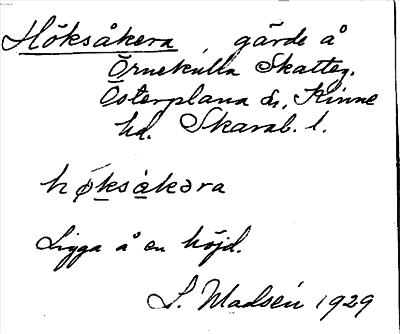 Höksåkera, gärde å
Örnekulla Skatteg.
Österplana s., Kinne
hd. Skarab. l.
høksåkəra
Ligga å en höjd.
S. Madsén 1929